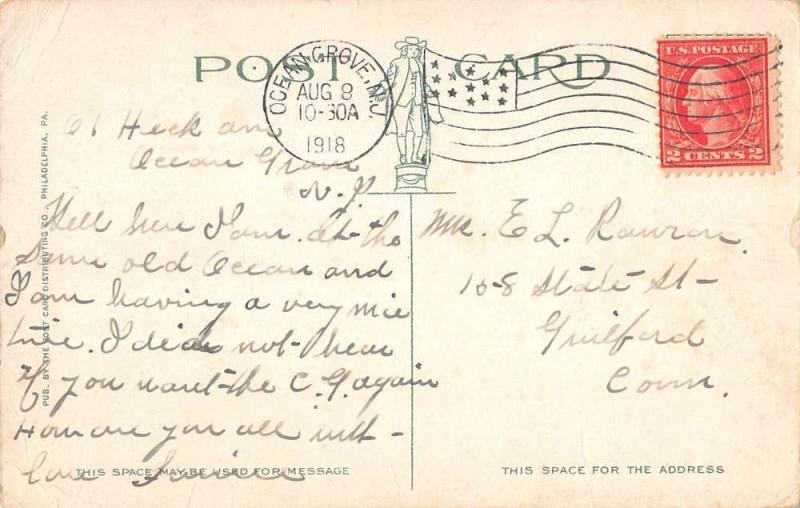 POST CARD
OCEAN GROVE, N.J.
AUG 8
10-30A
1918
U.S. POSTAGE
2 CENTS 2
61 Heck ave
Ocean Grove
N.J.
Well here I am. at the
same old Ocean and
I am having a very nice
time. I did not hear
if you want the C. G. again
How are you all with
love
Mr. E L. Rawson
158 State St
Guilford
Conn.
PUB. BY THE POST CARD DISTRIBUTING CO., PHILADELPHIA, PA.
THIS SPACE MAY BE USED FOR MESSAGE
THIS SPACE FOR THE ADDRESS